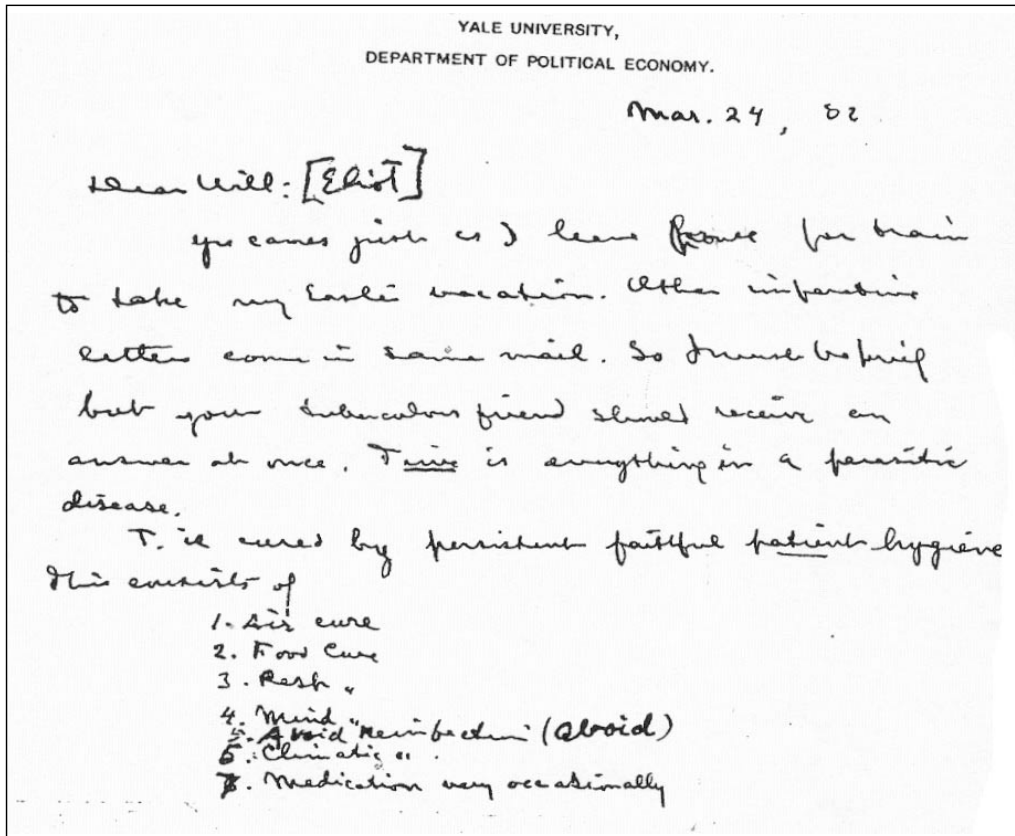 YALE UNIVERSITY,
DEPARTMENT OF POLITICAL ECONOMY.
Mar. 24, 02
Dear Will: [Eliot]
Yrs comes just as I leave for train
to take my Easter vacation. Other imperative
letters come in same mail. So I must be brief
but your tuberculous friend should receive an
answer at once. Time is everything in a parasitic
disease.
T. is cured by persistent faithful patient hygiene
This consists of
1. Air cure
2. Food Cure
3. Rest "
4. Mind "
5. Avoid Reinfection (avoid)
6. Climatic "
7. Medication very occasionally